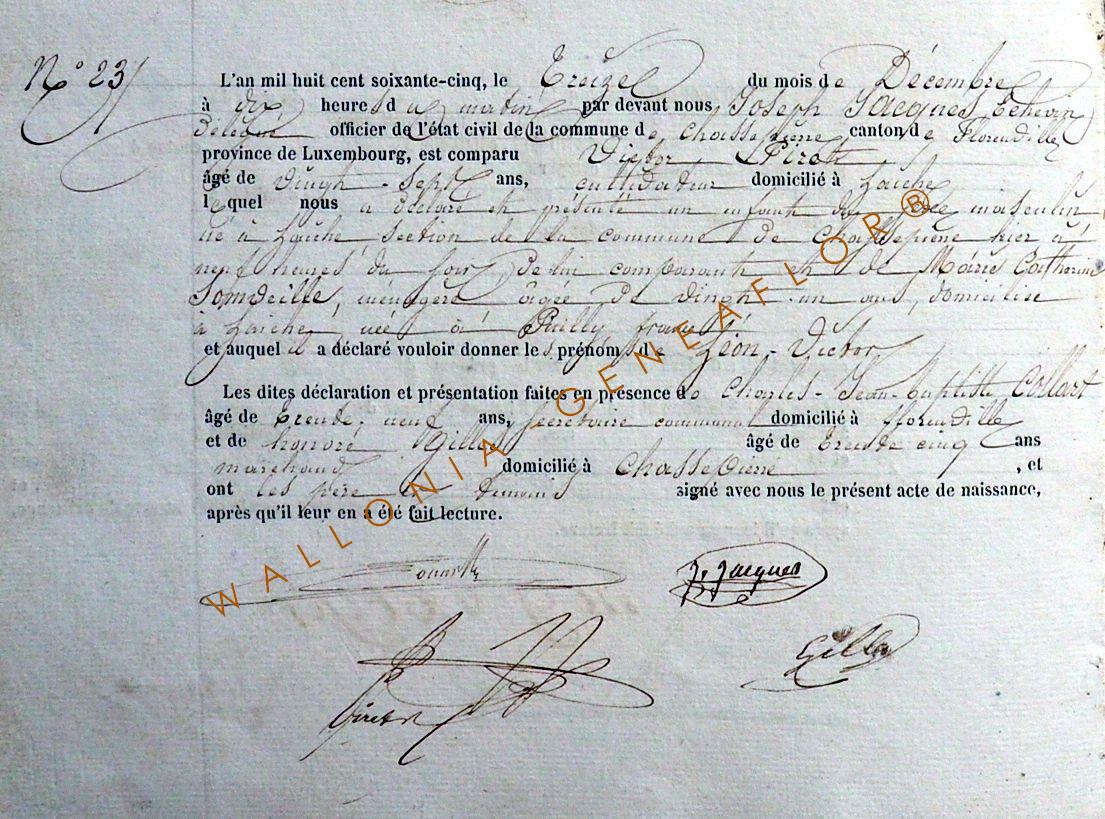 N° 23
L'an mil huit cent soixante-cinq, le Treize du mois de Décembre
à dix heures du matin par devant nous Joseph Jacques Echevin
délégué officier de l'état civil de la commune de Chassepierre canton de Florenville
province de Luxembourg, est comparu Victor Pirot
âgé de vingt-sept ans, cultivateur domicilié à Laiche
lequel nous a déclaré et présenté un enfant du sexe masculin
né à Laiche, section de la commune de Chassepierre hier à
neuf heures du soir, de lui comparant et de Marie Catherine
Somveille, ménagère âgée de vingt-un ans, domiciliée
à Laiche, née à Puilly, france
et auquel il a déclaré vouloir donner les prénoms de Léon-Victor
Les dites déclaration et présentation faites en présence de Charles-Jean-Baptiste Collart
âgé de trente neuf ans, secrétaire communal domicilié à Florenville
et de honoré Gilles âgé de trente cinq ans
marchand domicilié à Chassepierre, et
ont les père et témoins signé avec nous le présent acte de naissance,
après qu'il leur en a été fait lecture.
J. Jacques
Gilles
Pirot
WALLONIA GENEAFLOR®